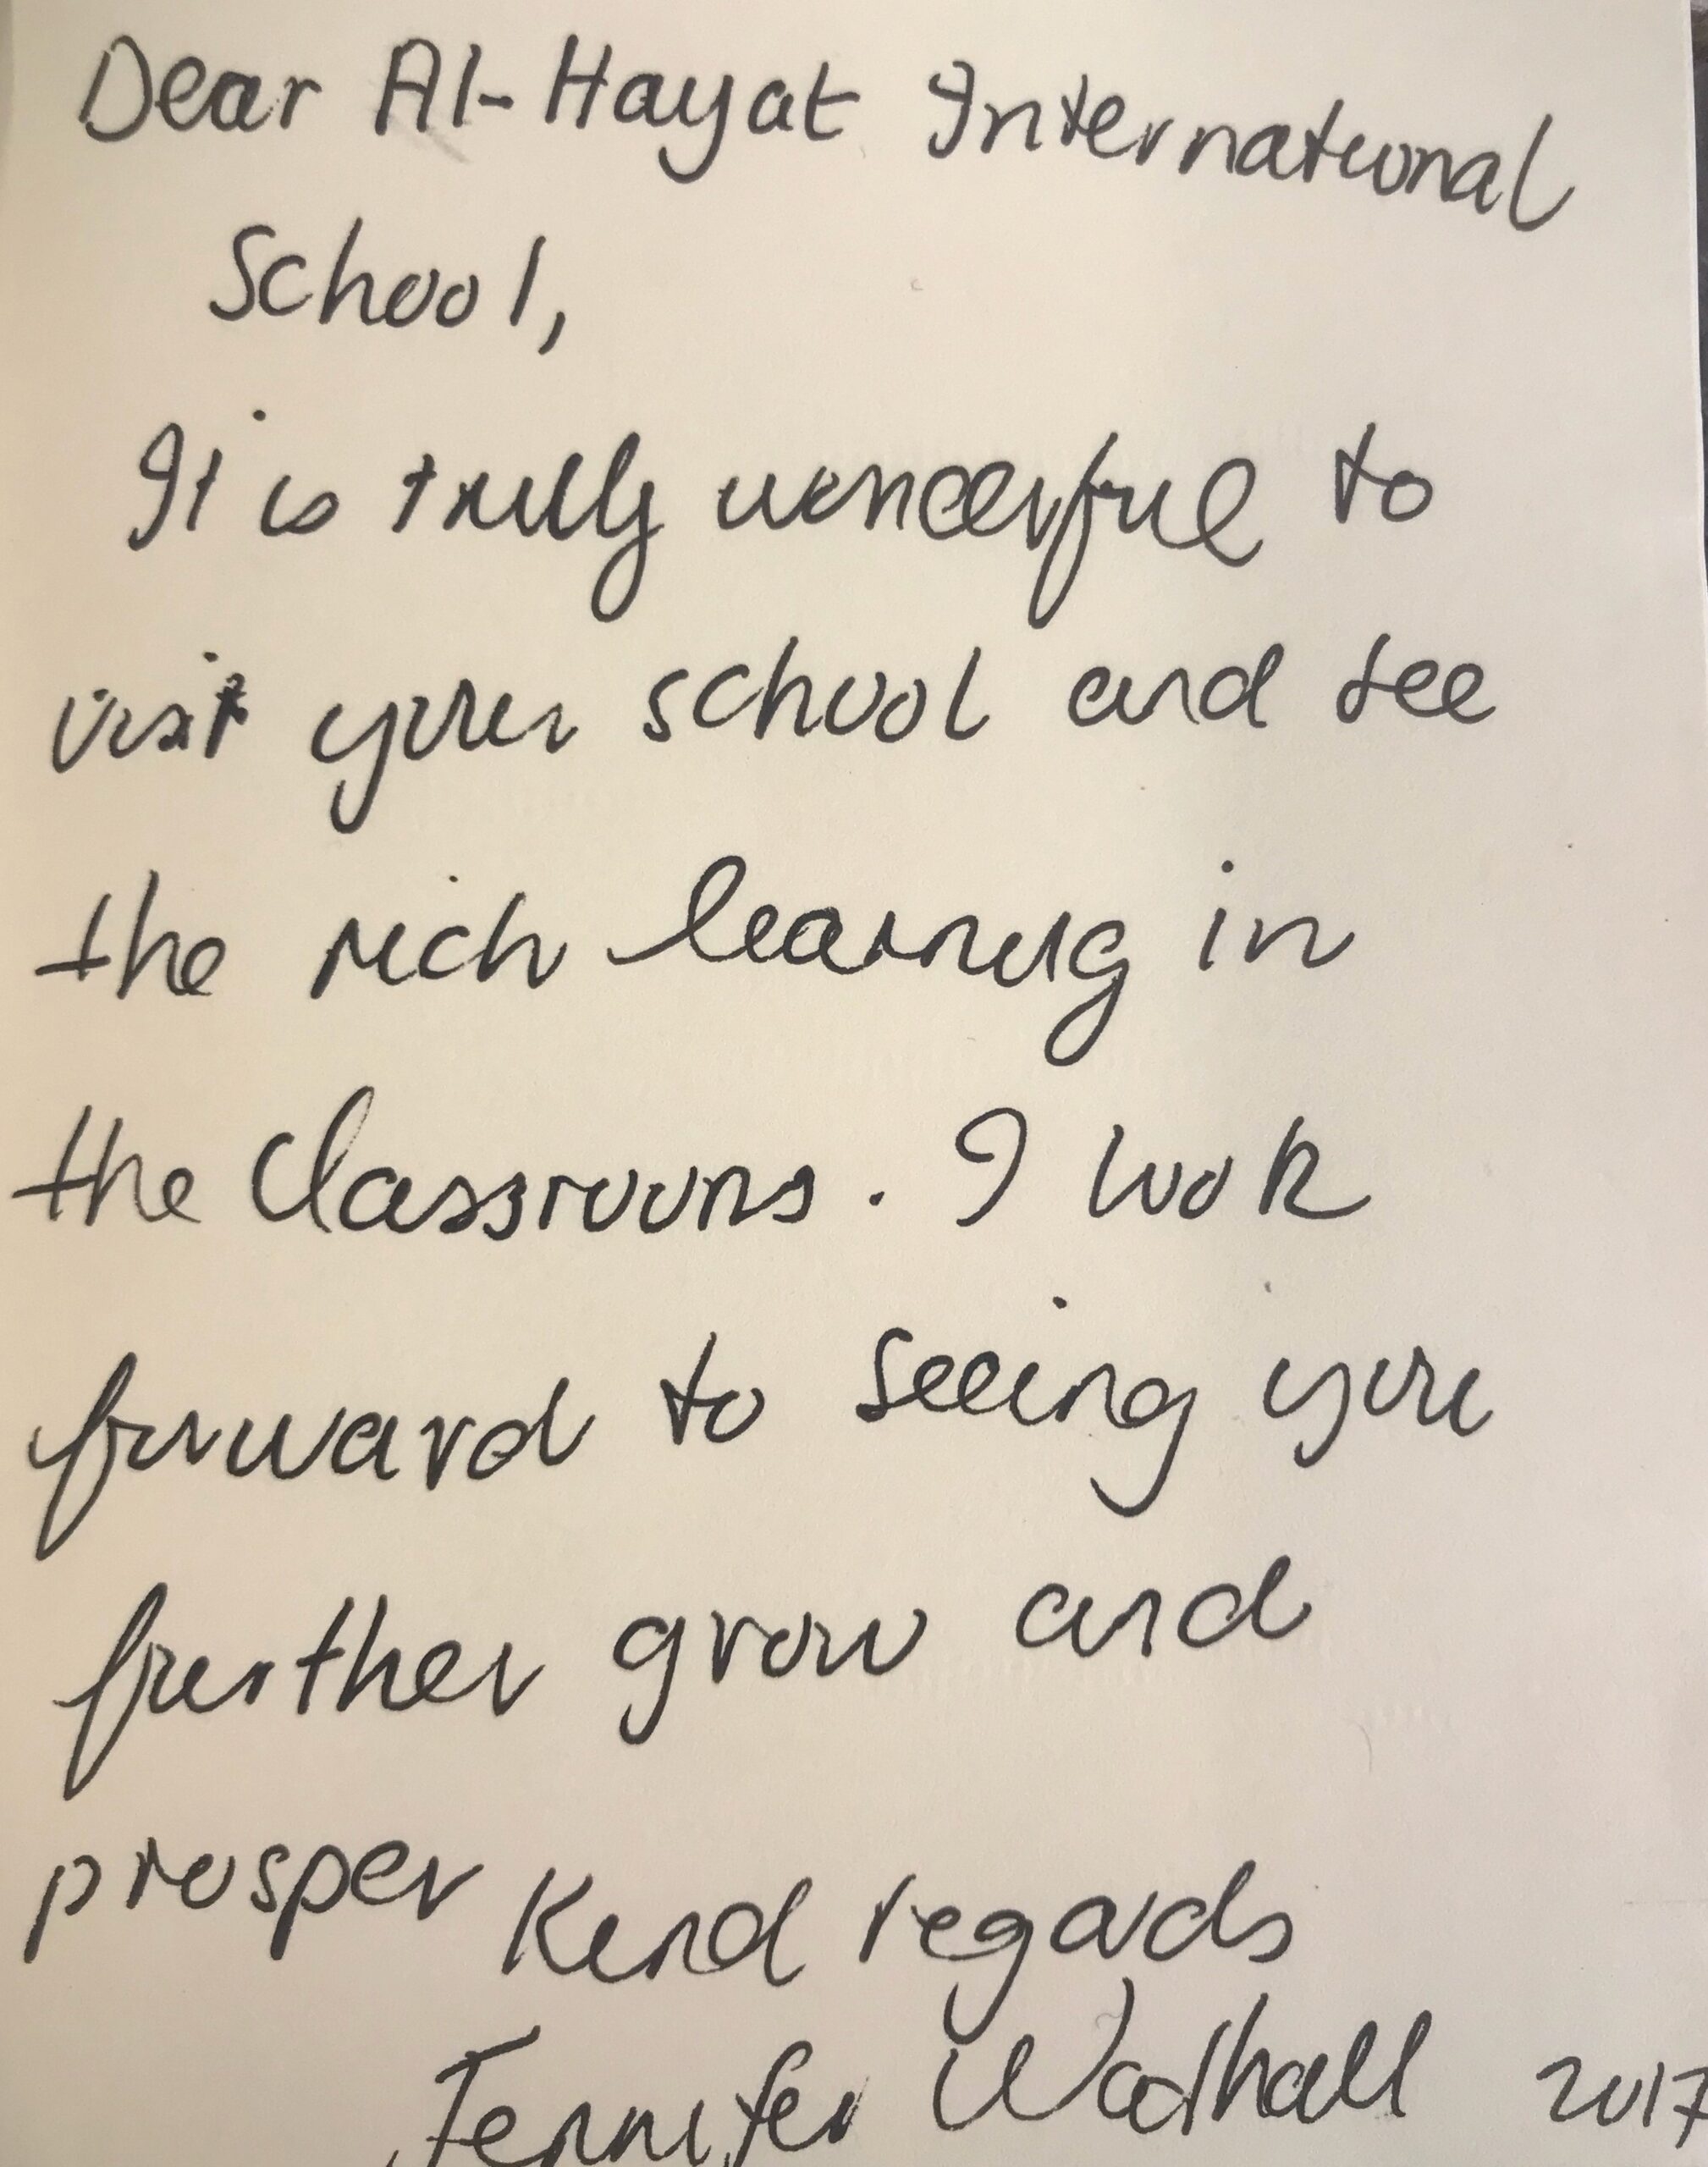 Dear Al-Hayat International
School,
It is truly wonderful to
visit your school and see
the rich learning in
the classrooms. I look
forward to seeing you
further grow and
prosper
Kind regards
Jennifer Wathall 2017